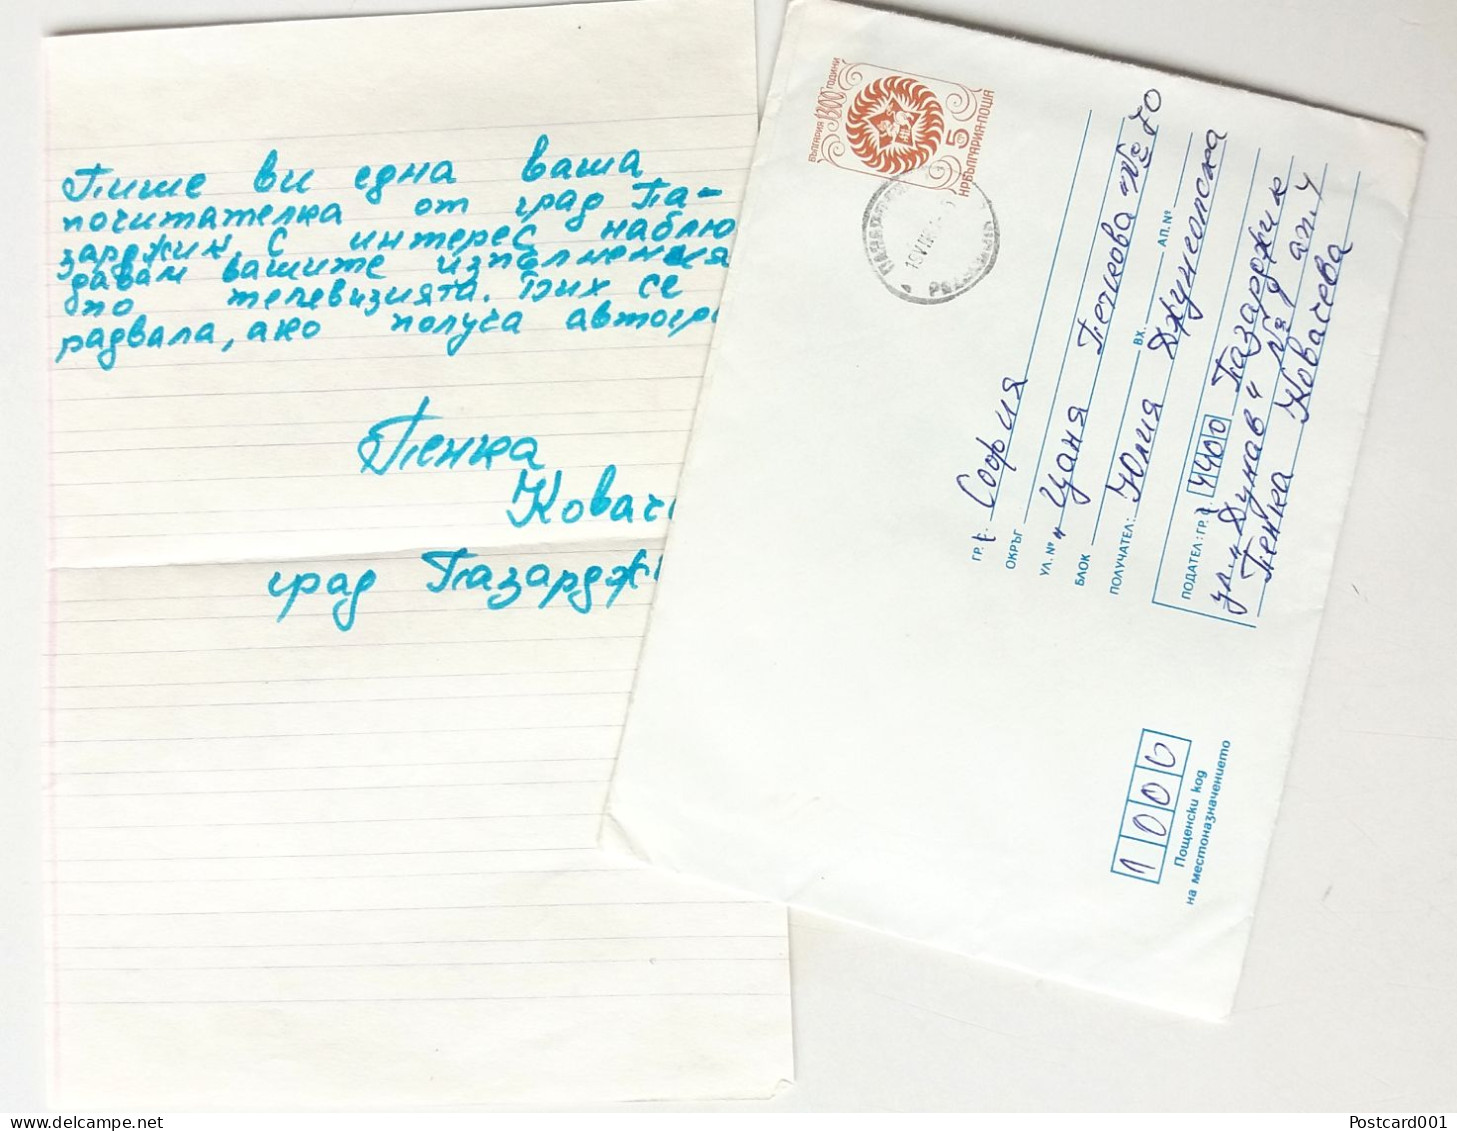 Пише ви една ваша
почитателка от град Па-
зарджик. С интерес наблю
давам вашите изпълнения
по телевизията. Бих се
радвала, ако получа автогр
Пенка
Ковач
град Пазардж
БЪЛГАРИЯ 1300 ГОДИНИ
5
НР БЪЛГАРИЯ·ПОЩА
ГР. С. София
ОКРЪГ
УЛ. № "Цаня Печкова" № 70
БЛОК ВХ. АП. №
ПОЛУЧАТЕЛ: Юлия Джунопска
ПОДАТЕЛ: ГР. 4400 Пазарджик
ул. "Дунав" № ап. 4
Пенка Ковачева
1000
Пощенски код
на местоназначението
Postcard001